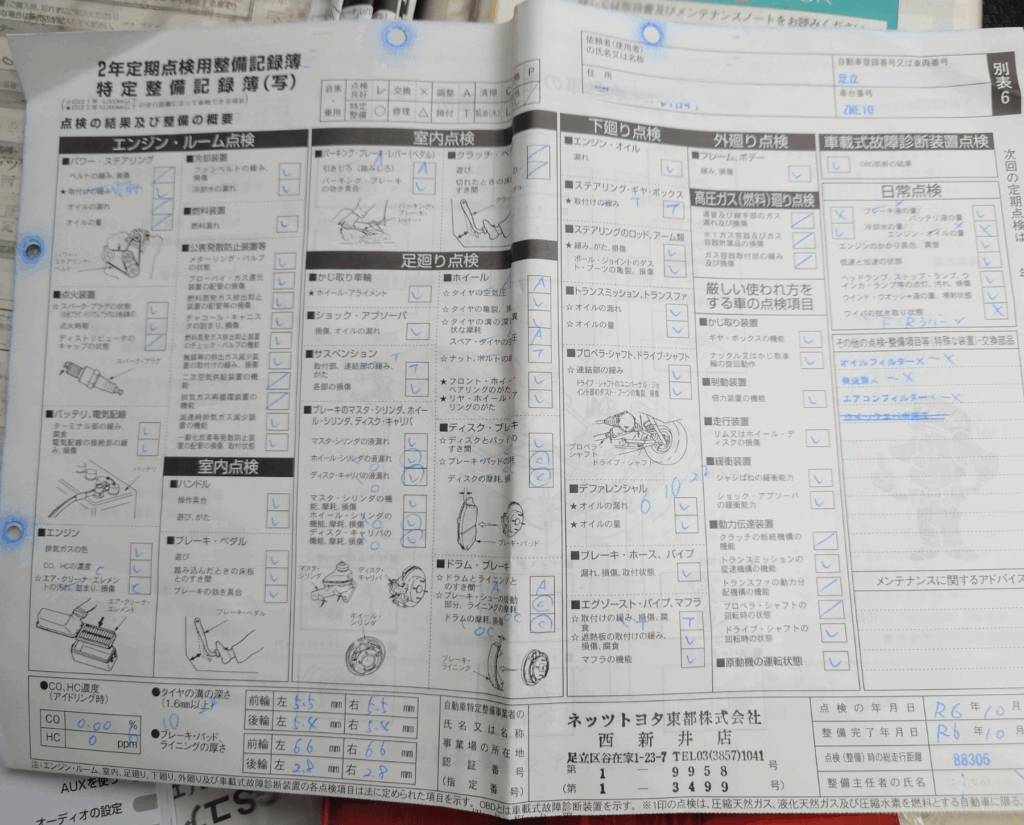 2年定期点検用整備記録簿
特定整備記録簿(写)
点検の結果及び整備の概要
点検良好 レ 交換 × 調整 A 清掃
特定整備 ○ 修理 △ 締付 T
依頼者(使用者)の氏名又は名称
住所
自動車登録番号又は車両番号
足立
車台番号
別表6
エンジン・ルーム点検
■パワー・ステアリング
ベルトの緩み、損傷
★取付けの緩み
オイルの漏れ
オイルの量
パワー・ステアリング・ベルト
■点火装置
☆スパーク・プラグの状態
点火時期
ディストリビュータのキャップの状態
スパーク・プラグ
■バッテリ、電気配線
ターミナル部の緩み、腐食
電気配線の接続部の緩み、損傷
バッテリ
■エンジン
排気ガスの色
CO、HCの濃度
☆エア・クリーナ・エレメントの汚れ、詰まり、損傷
エア・クリーナ・エレメント
■冷却装置
ファンベルトの緩み、損傷
冷却水の漏れ
■燃料装置
燃料漏れ
■公害発散防止装置等
メターリング・バルブの状態
ブローバイ・ガス還元装置の配管の損傷
燃料蒸発ガス排出抑止装置の配管等の損傷
チャコール・キャニスタの詰まり、損傷
燃料蒸発ガス排出抑止装置のチェック・バルブの機能
触媒等の排出ガス減少装置の取付けの緩み、損傷
二次空気供給装置の機能
排気ガス再循環装置の機能
減速時排気ガス減少装置の機能
一酸化炭素等発散防止装置の配管の損傷、取付状態
室内点検
■ハンドル
操作具合
遊び、がた
■ブレーキ・ペダル
遊び
踏み込んだときの床板とのすき間
ブレーキの効き具合
ブレーキ・ペダル
室内点検
■パーキング・ブレーキ・レバー(ペダル)
引きしろ(踏みしろ)
パーキング・ブレーキの効き具合
パーキング・ブレーキ・レバー
■クラッチ・ペ
遊び
切れたときの床
すき間
足廻り点検
■かじ取り車輪
★ホイール・アライメント
■ショック・アブソーバ
損傷、オイルの漏れ
■サスペンション
取付部、連結部の緩み、がた
各部の損傷
■ブレーキのマスタ・シリンダ、ホイール・シリンダ、ディスク・キャリパ
マスタ・シリンダの液漏れ
ホイール・シリンダの液漏れ
ディスク・キャリパの液漏れ
マスタ・シリンダの機能、摩耗、損傷
ホイール・シリンダの機能、摩耗、損傷
ディスク・キャリパの機能、摩耗、損傷
マスタ・シリンダ
ディスク・キャリパ
ホイール・シリンダ
■ホイール
☆タイヤの空気圧
☆タイヤの亀裂、損
☆タイヤの溝の深
状な摩耗
スペア・タイヤの
☆ナット、ボルトの緩
★フロント・ホイ
ベアリングのがた
★リヤ・ホイール
リングのがた
■ディスク・ブレーキ
☆ディスクとパッドのすき間
☆ブレーキ・パッドの
ディスクの摩耗、損
ブレーキ・パッド
■ドラム・ブレーキ
☆ドラムとライニングとのすき間
☆ブレーキ・シューの摺動部分、ライニングの摩耗
ドラムの摩耗、損傷
ブレーキ・ライニング
下廻り点検
■エンジン・オイル
漏れ
■ステアリング・ギヤ・ボックス
★取付けの緩み
■ステアリングのロッド、アーム類
★緩み、がた、損傷
ボール・ジョイントのダスト・ブーツの亀裂、損傷
■トランスミッション、トランスファ
☆オイルの漏れ
☆オイルの量
■プロペラ・シャフト、ドライブ・シャフト
☆連結部の緩み
ドライブ・シャフトのユニバーサル・ジョイント部のダスト・ブーツの亀裂、損傷
プロペラシャフト
ドライブ・シャフト
■デファレンシャル
★オイルの漏れ
★オイルの量
■ブレーキ・ホース、パイプ
漏れ、損傷、取付状態
■エグゾースト・パイプ、マフラ
☆取付けの緩み、損傷、腐食
☆遮熱板の取付けの緩み、損傷、腐食
マフラの機能
外廻り点検
■フレーム、ボデー
緩み、損傷
高圧ガス(燃料)廻り点検
導管及び継手部のガス漏れ及び損傷
※1ガス容器及びガス容器附属品の損傷
ガス容器取付部の緩み及び損傷
厳しい使われ方をする車の点検項目
■かじ取り装置
ギヤ・ボックスの機能
ナックル又はかじ取り車輪の空回動
■制動装置
倍力装置の機能
■走行装置
リム又はホイール・ディスクの損傷
■緩衝装置
シャシばねの緩衝能力
ショック・アブソーバの緩衝能力
■動力伝達装置
クラッチの断続機構の機能
トランスミッションの変速機構の機能
トランスファの動力分配機構の機能
プロペラ・シャフトの回転時の状態
ドライブ・シャフトの回転時の状態
■原動機の運転状態
車載式故障診断装置点検
OBD診断の結果
日常点検
ブレーキ液の量
バッテリ液の量
冷却水の量
エンジン・オイルの量
エンジンのかかり具合、異音
低速と加速の状態
ヘッドランプ、ストップ・ランプ、ウインカ・ランプ等の点灯、汚れ、損傷
ウインド・ウオッシャ液の量、噴射状態
ワイパの拭き取り状態
その他の点検・整備項目等(特殊な装置)・交換部品
オイルフィルター ー×
発炎筒 ー×
エアコンフィルター ー×
メンテナンスに関するアドバイス
次回の定期点検は
●CO、HC濃度
(アイドリング時)
CO 0.00 %
HC 0 ppm
●タイヤの溝の深さ
(1.6mm以上)
●ブレーキ・パッド、ライニングの厚さ
前輪 左 5.5 mm 右 5.5 mm
後輪 左 5.4 mm 右 5.4 mm
前輪 左 6.6 mm 右 6.6 mm
後輪 左 2.8 mm 右 2.8 mm
自動車特定整備事業者の
氏名又は名称
事業場の所在地
認証番号
(指定番号)
ネッツトヨタ東都株式会社
西新井店
足立区谷在家1-23-7 TEL03(3857)1041
第 1 ー 9958 号
(第 1 ー 3499 号)
点検の年月日 R6年10月
整備完了年月日 R6年10月
点検(整備)時の総走行距離 88305
整備主任者の氏名
注:エンジン・ルーム、室内、足廻り、下廻り、外廻り及び車載式故障診断装置の各点検項目は法に定められた項目を示す。OBDとは車載式故障診断装置を示す。※1印の点検は、圧縮天然ガス、液化天然ガス及び圧縮水素を燃料とする自動車に限る。
AUXを使っ
オーディオの設定